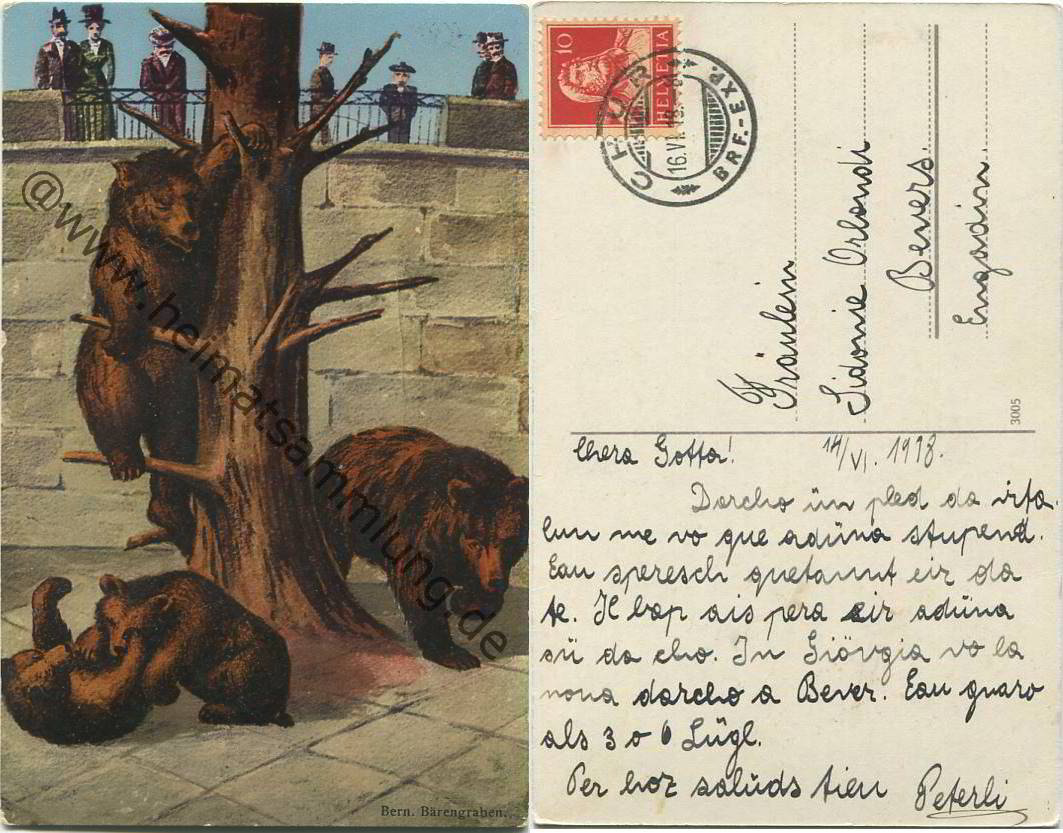 @www.heimatsammlung.de
Bern. Bärengraben.
10
HELVETIA
CHUR
16.VI.18.
BRF.-EXP.
Fräulein
Sidonie Orlandi
Bevers.
Engadin.
3005
Chera Gotta! 14/VI. 1918.
Darcho ün pled da
me vo que adüna stupend.
Eau speresch quetaunt eir da
te. Il bap ais pera eir adüna
sü da cho. In Giövgia vo la
nona darcho a Bever. Eau guaro
als 3 o 6 Lügl.
Per hoz salüds tieu Peterli